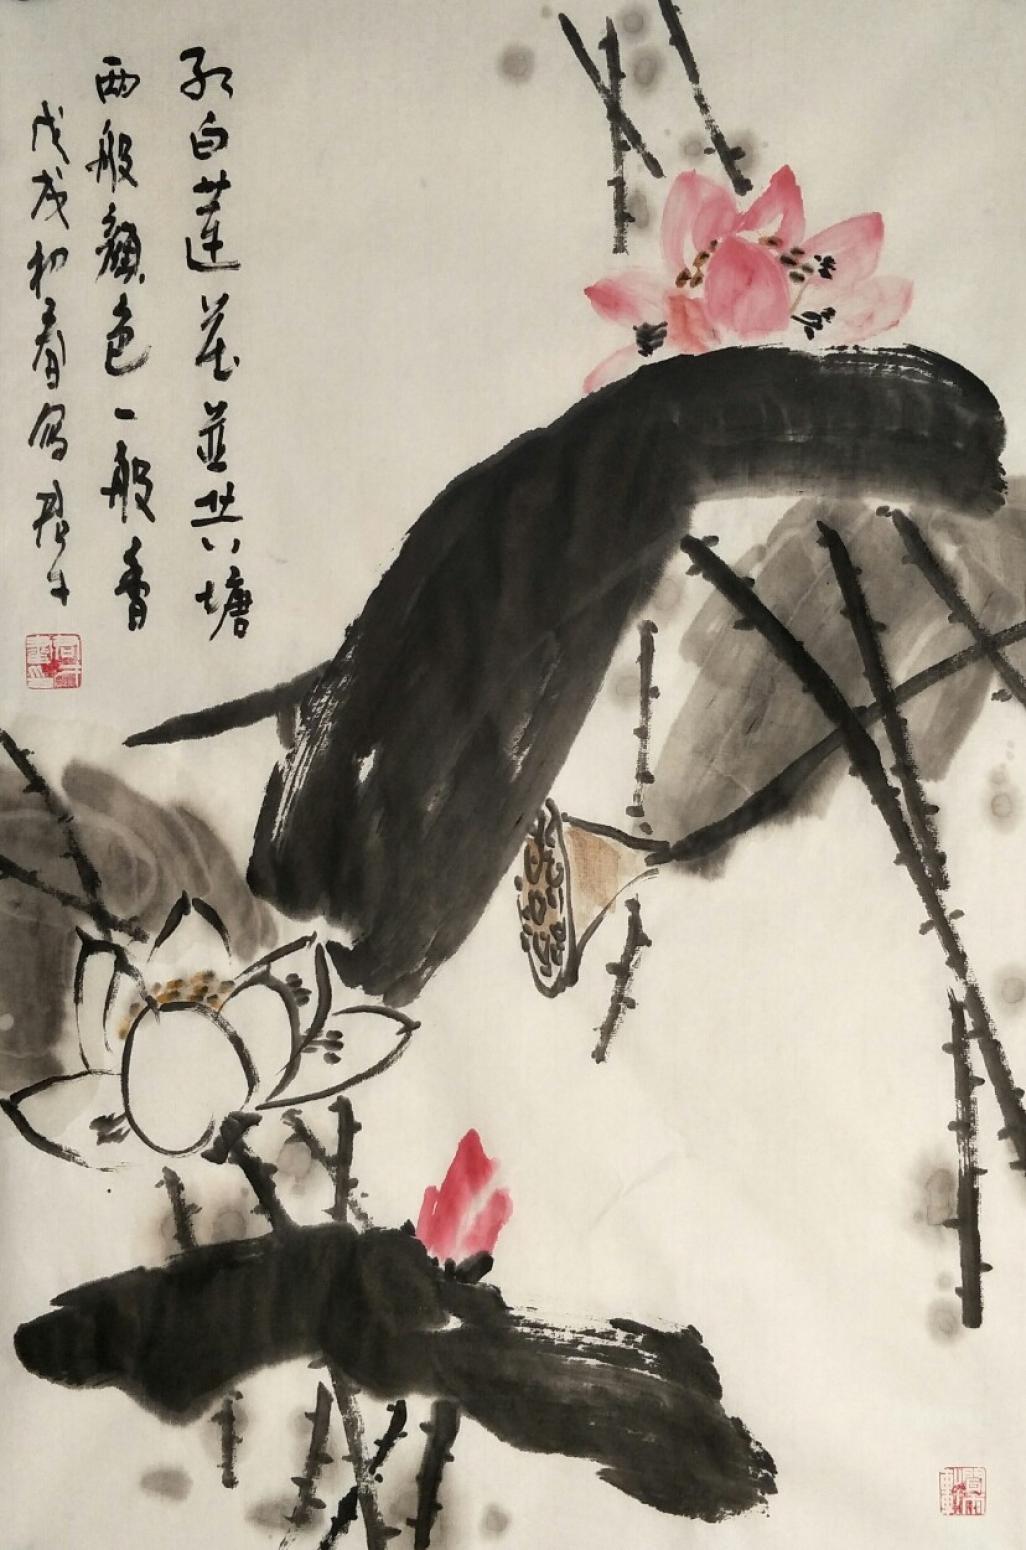 红白莲花並共塘
两般颜色一般香
戊戌初春写